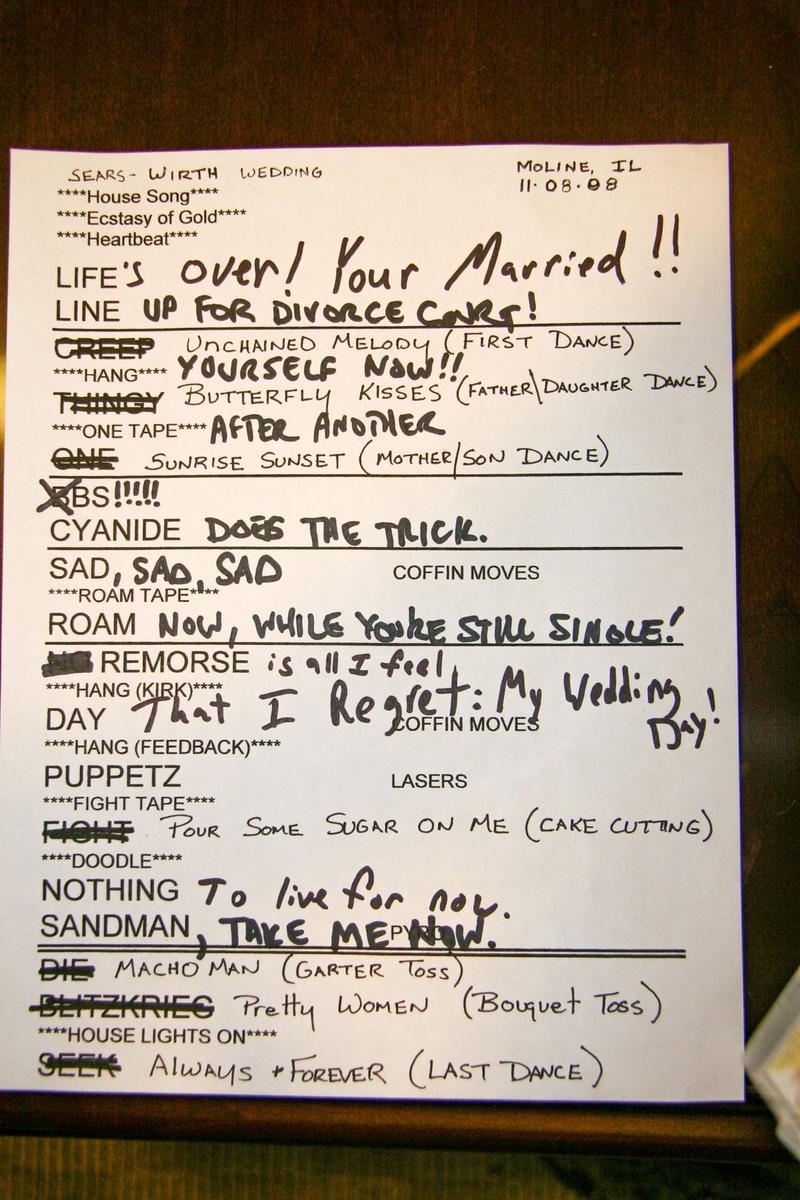 SEARS - WIRTH WEDDING MOLINE, IL
****House Song**** 11.08.08
****Ecstasy of Gold****
****Heartbeat****
LIFE's over! Your Married!!
LINE UP FOR DIVORCE COURT!
CREEP UNCHAINED MELODY (FIRST DANCE)
****HANG**** YOURSELF NOW!!
THINGY BUTTERFLY KISSES (FATHER\DAUGHTER DANCE)
****ONE TAPE**** AFTER ANOTHER
ONE SUNRISE SUNSET (MOTHER/SON DANCE)
BBS!!!!!
CYANIDE DOES THE TRICK.
SAD, SAD, SAD COFFIN MOVES
****ROAM TAPE****
ROAM NOW, WHILE YOU'RE STILL SINGLE!
NO REMORSE is all I feel
****HANG (KIRK)****
DAY That I Regret: My Wedding Day! COFFIN MOVES
****HANG (FEEDBACK)****
PUPPETZ LASERS
****FIGHT TAPE****
FIGHT POUR SOME SUGAR ON ME (CAKE CUTTING)
****DOODLE****
NOTHING To live for now.
SANDMAN, TAKE ME NOW. PYRO
DIE MACHO MAN (GARTER TOSS)
BLITZKRIEG Pretty WOMEN (Bouquet Toss)
****HOUSE LIGHTS ON****
SEEK ALWAYS + FOREVER (LAST DANCE)